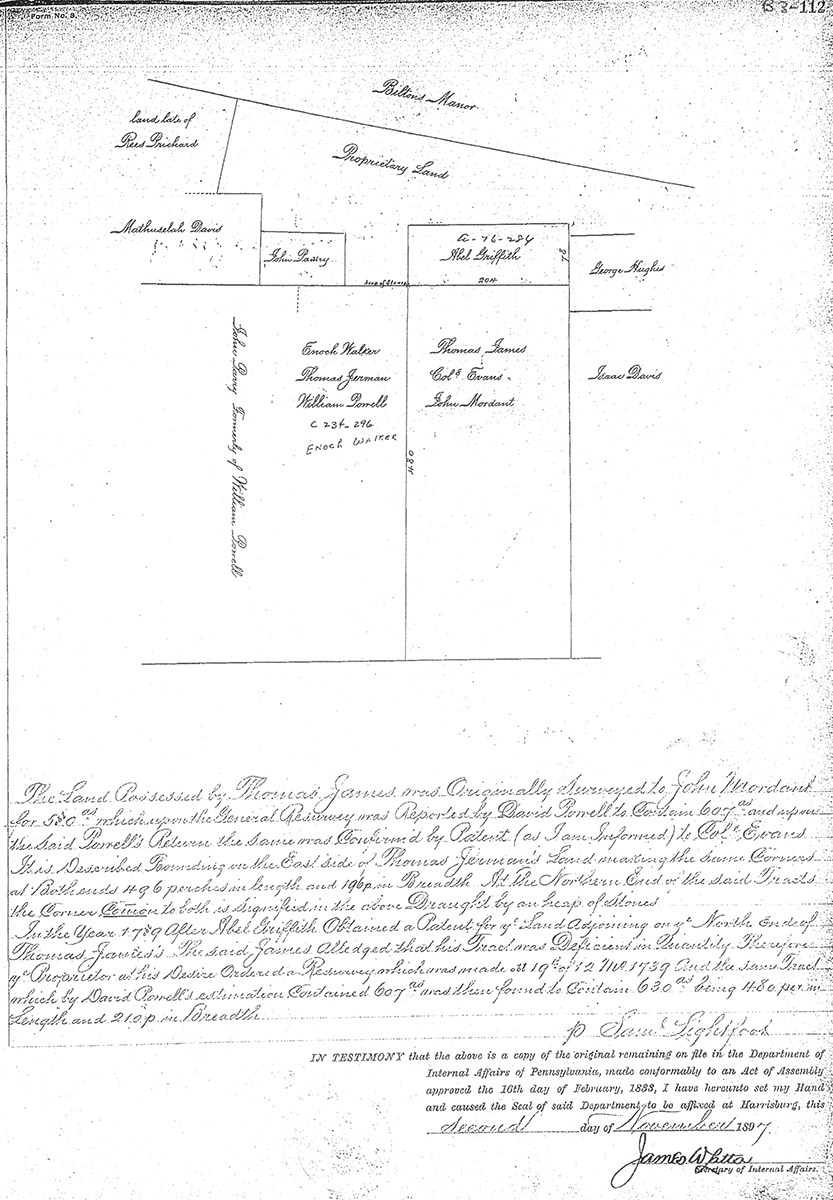 Form No. 3.
B 8-112
Biltons Manor.
land late of
Rees Prichard
Proprietary Land
Mathuselah Davis
John Parry
a-76-284
Abel Griffith
204
George Hughs
heap of Stones
John Parry Formerly of William Powell
Enoch Walker
Thomas Jerman
William Powell
C 234-296
ENOCH WALKER
Thomas James
Colº Evans.
John Mordant
480
Isaac Davis
The Land Possessed by Thomas James was Originally Surveyed to John Mordant
for 580 as which upon the General Resurvey was Reported by David Powell to Contain 607 as and upon
the said Powell's Return the same was Confirm'd by Patent (as I am Informed) to Colº Evans
It is Described Bounding on the East side of Thomas Jerman's Land making the same Corners
at Both ends 496 perches in length and 196 p in Breadth At the Northern End of the said Tracts
the Corner Comon to both is signified in the above Draught by an heap of Stones
In the Year 1739 After Abel Griffith Obtained a Patent for ye Land Adjoining on ye North End of
Thomas James's The said James Alledged that his Tract was Deficient in Quantity Therefore
ye Proprietor at his Desire Ordered a Resurvey which was made 19th of 12 Mo. 1739 And the same Tract
which by David Powell's estimation Contained 607 as was then found to Contain 630 as being 480 per in
Length and 210 p in Breadth
p Saml Lightfoot
IN TESTIMONY that the above is a copy of the original remaining on file in the Department of
Internal Affairs of Pennsylvania, made conformably to an Act of Assembly
approved the 16th day of February, 1833, I have hereunto set my Hand
and caused the Seal of said Department to be affixed at Harrisburg, this
Second day of November 1897
James W Latta
Secretary of Internal Affairs.